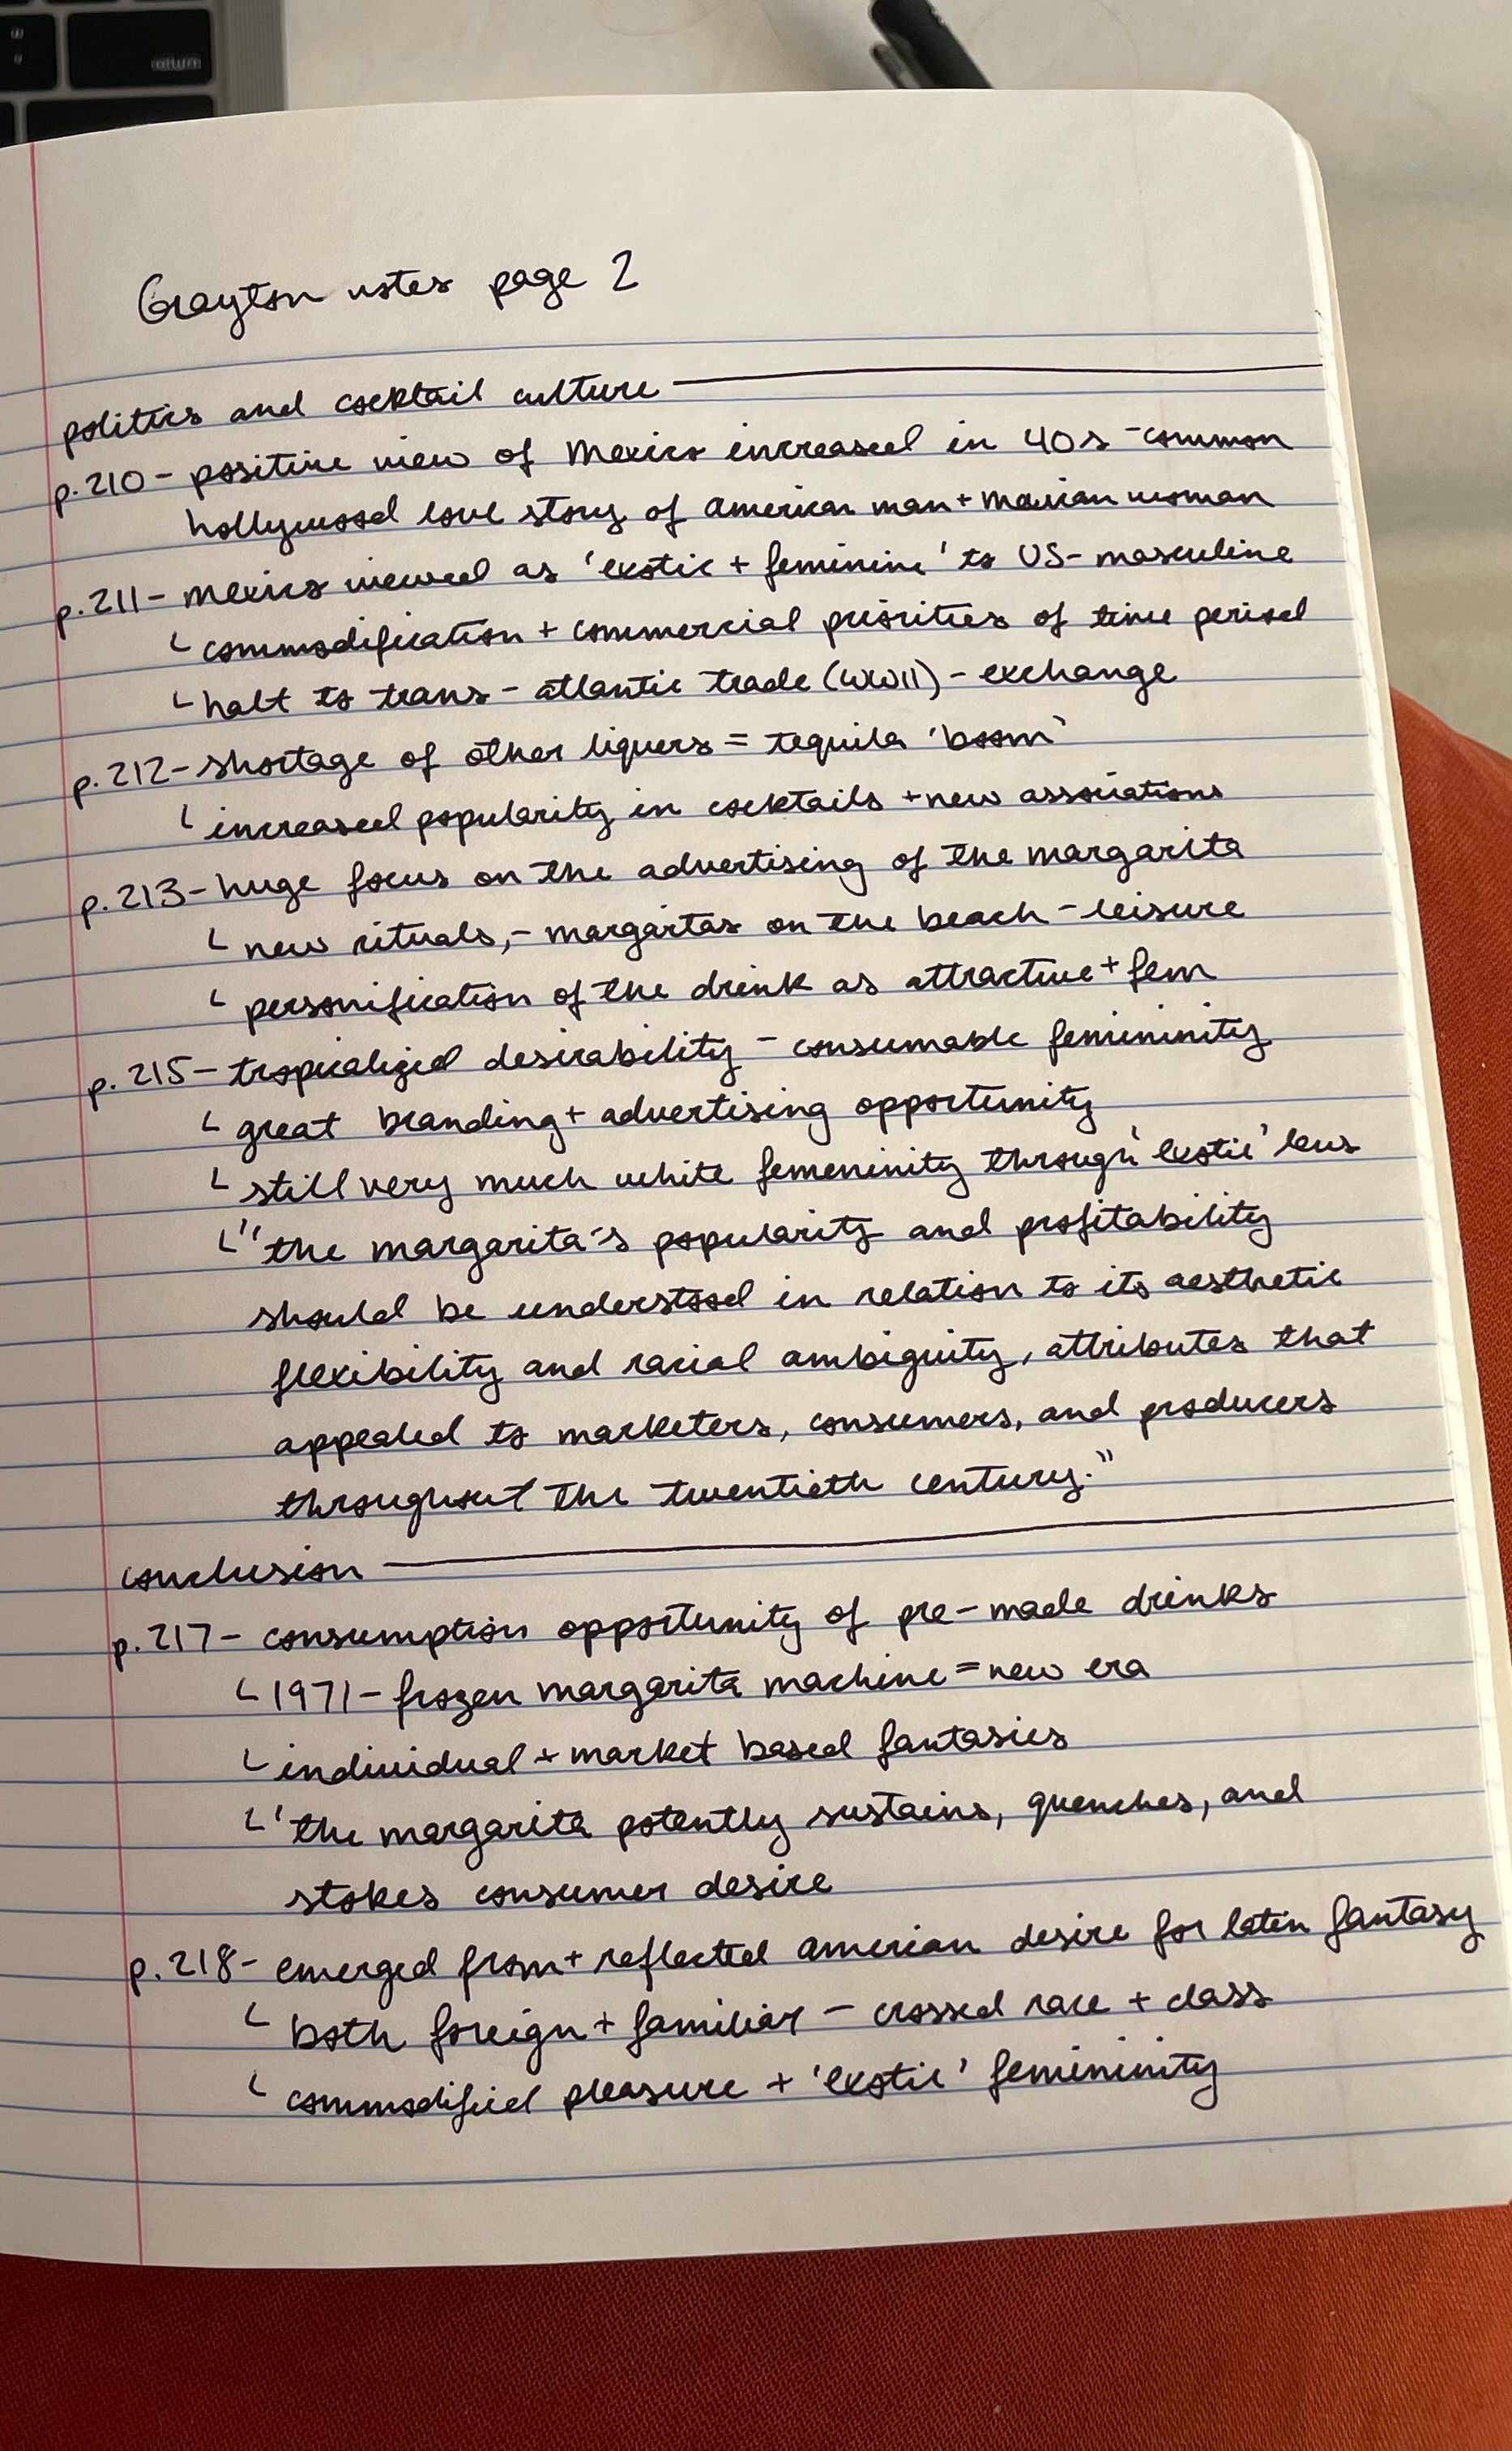 return
Grayton notes page 2
politics and cocktail culture
p.210- positive view of Mexico increased in 40s - common
hollywood love story of American man + Mexican woman
p.211- Mexico viewed as 'exotic + feminine' to US - masculine
└ commodification + commercial priorities of time period
└ halt to trans-atlantic trade (WWII) - exchange
p.212- shortage of other liquers = tequila 'boom'
└ increased popularity in cocktails + new associations
p.213- huge focus on the advertising of the margarita
└ new rituals, - margaritas on the beach - leisure
└ personification of the drink as attractive + fem
p.215- tropicalized desirability - consumable femininity
└ great branding + advertising opportunity
└ still very much white femeninity through 'exotic' lens
└ "the margarita's popularity and profitability
should be understood in relation to its aesthetic
flexibility and racial ambiguity, attributes that
appealed to marketers, consumers, and producers
throughout the twentieth century."
conclusion
p.217- consumption opportunity of pre-made drinks
└ 1971- frozen margarita machine = new era
└ individual + market based fantasies
└ 'the margarita potently sustains, quenches, and
stokes consumer desire
p.218- emerged from + reflected american desire for latin fantasy
└ both foreign + familiar - crossed race + class
└ commodified pleasure + 'exotic' femininity